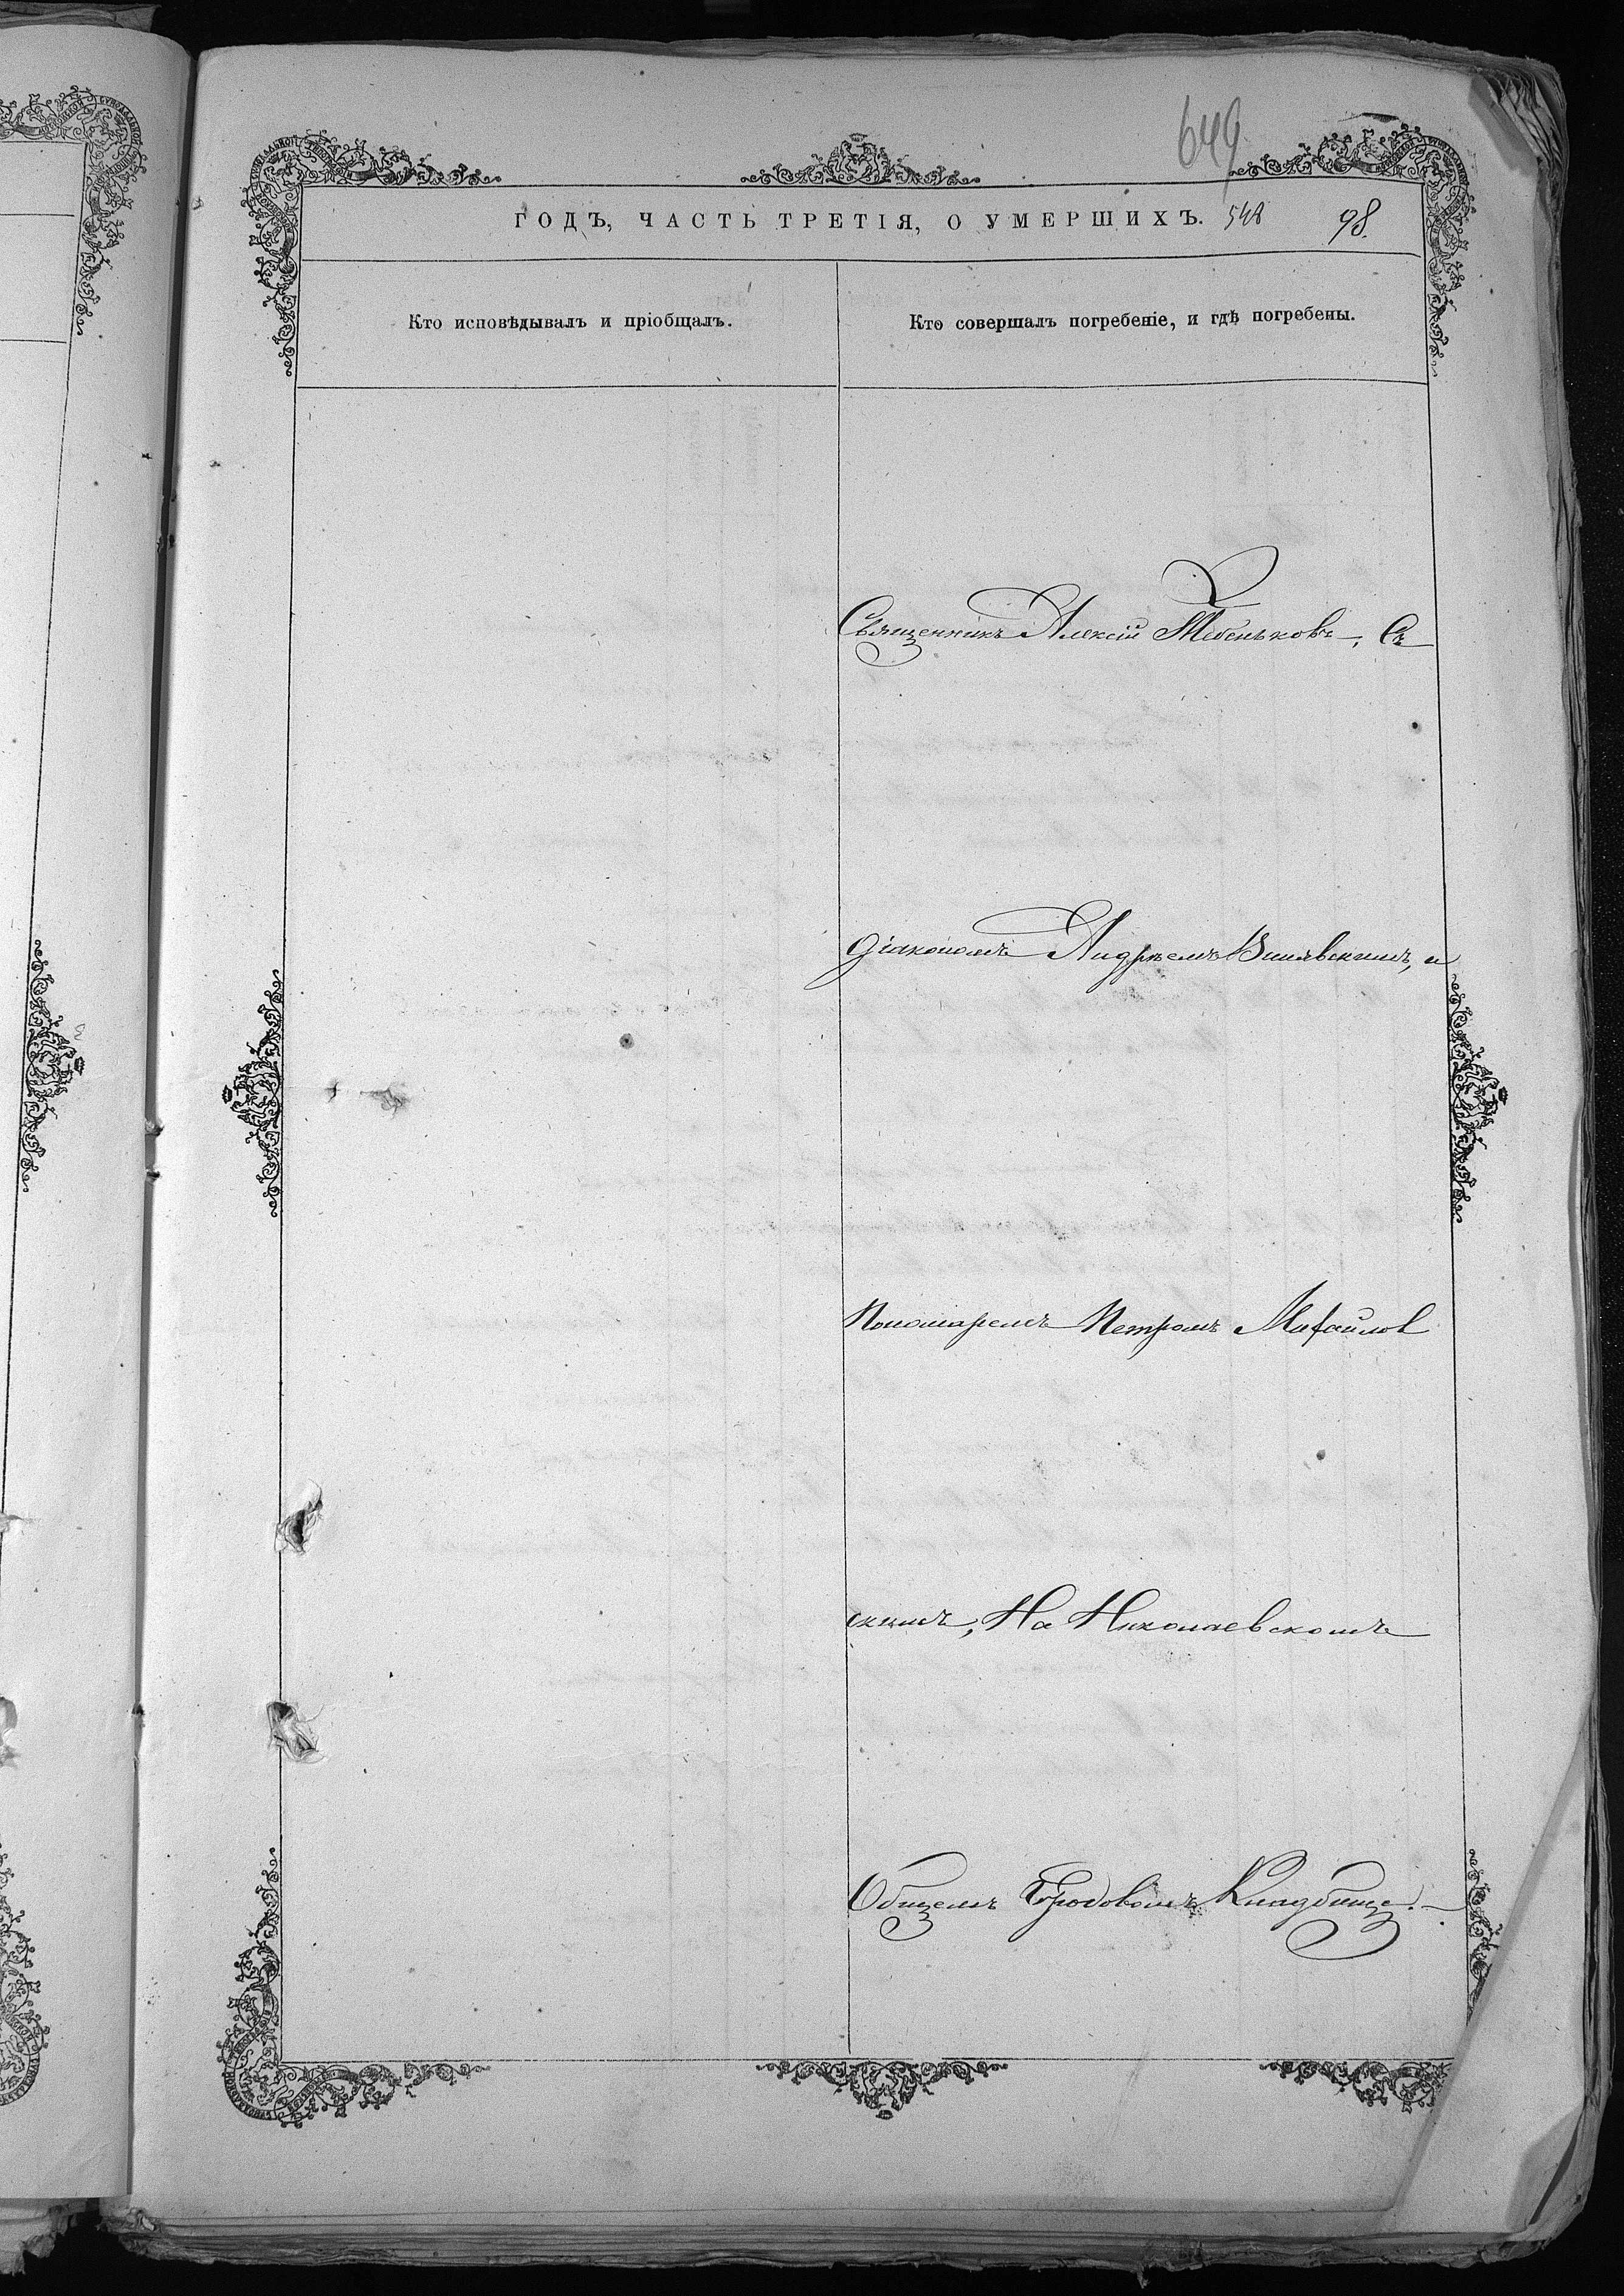 649
ГОДЪ, ЧАСТЬ ТРЕТІЯ, О УМЕРШИХЪ. 548 98.
Кто исповѣдывалъ и пріобщалъ.
Кто совершалъ погребеніе, и гдѣ погребены.
Священникъ Алексій Тебеньковъ, Съ
діакономъ Андреемъ, и
Пономаремъ Петромъ Михайлов
скимъ, На Николаевскомъ
Общемъ Городовомъ Кладбище.